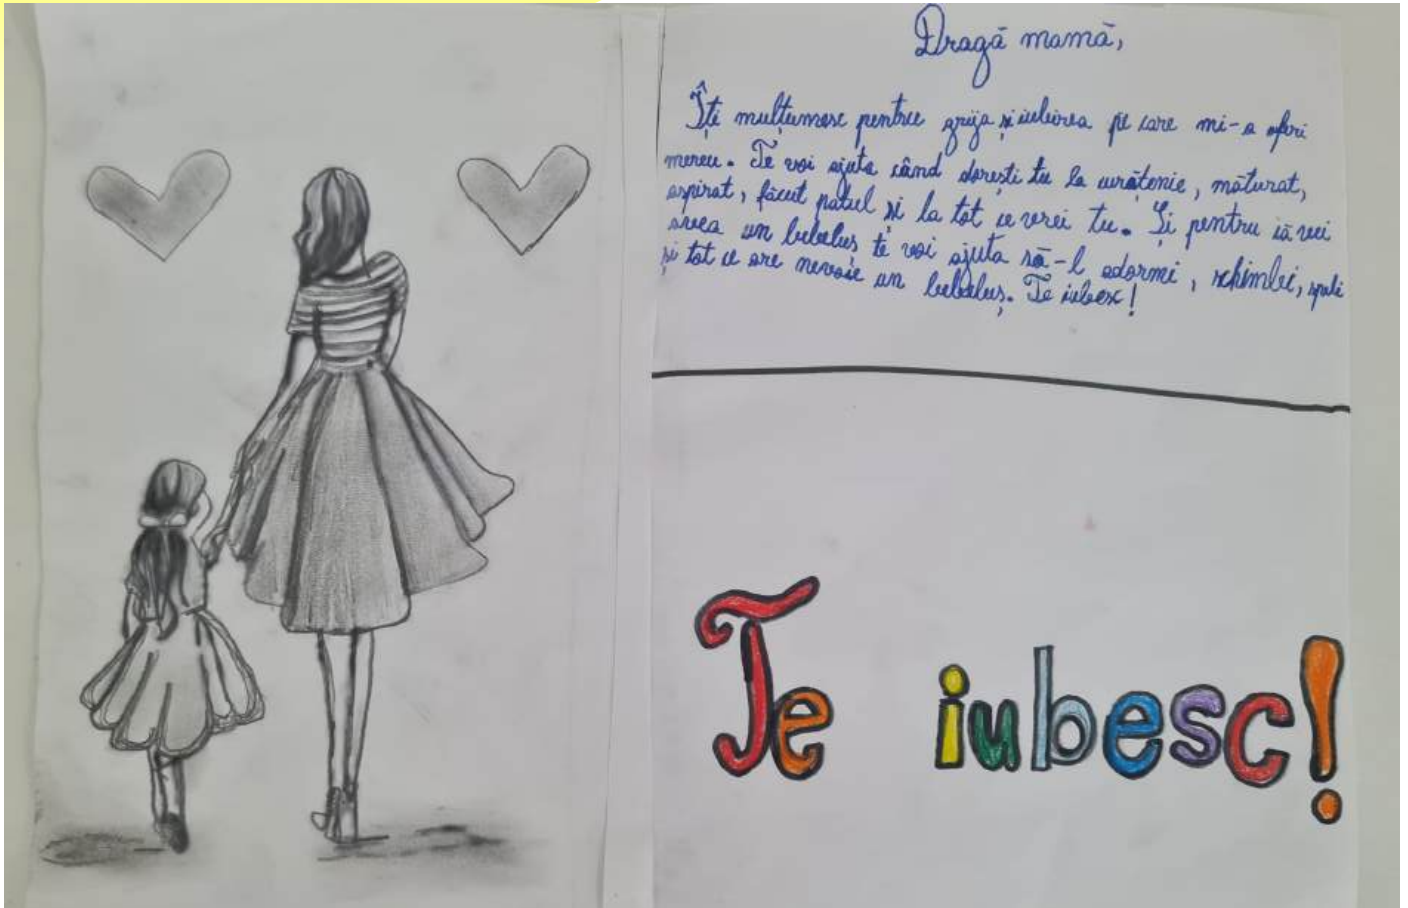 Dragă mamă,
Îți mulțumesc pentru grija și iubirea pe care mi-a oferi
mereu. Te voi ajuta când dorești tu la curățenie, măturat,
aspirat, făcut patul și la tot ce vrei tu. Și pentru că vei
avea un bebeluș te voi ajuta să-l adormi, schimbi, speli
și tot ce are nevoie un bebeluș. Te iubesc!
Te iubesc!